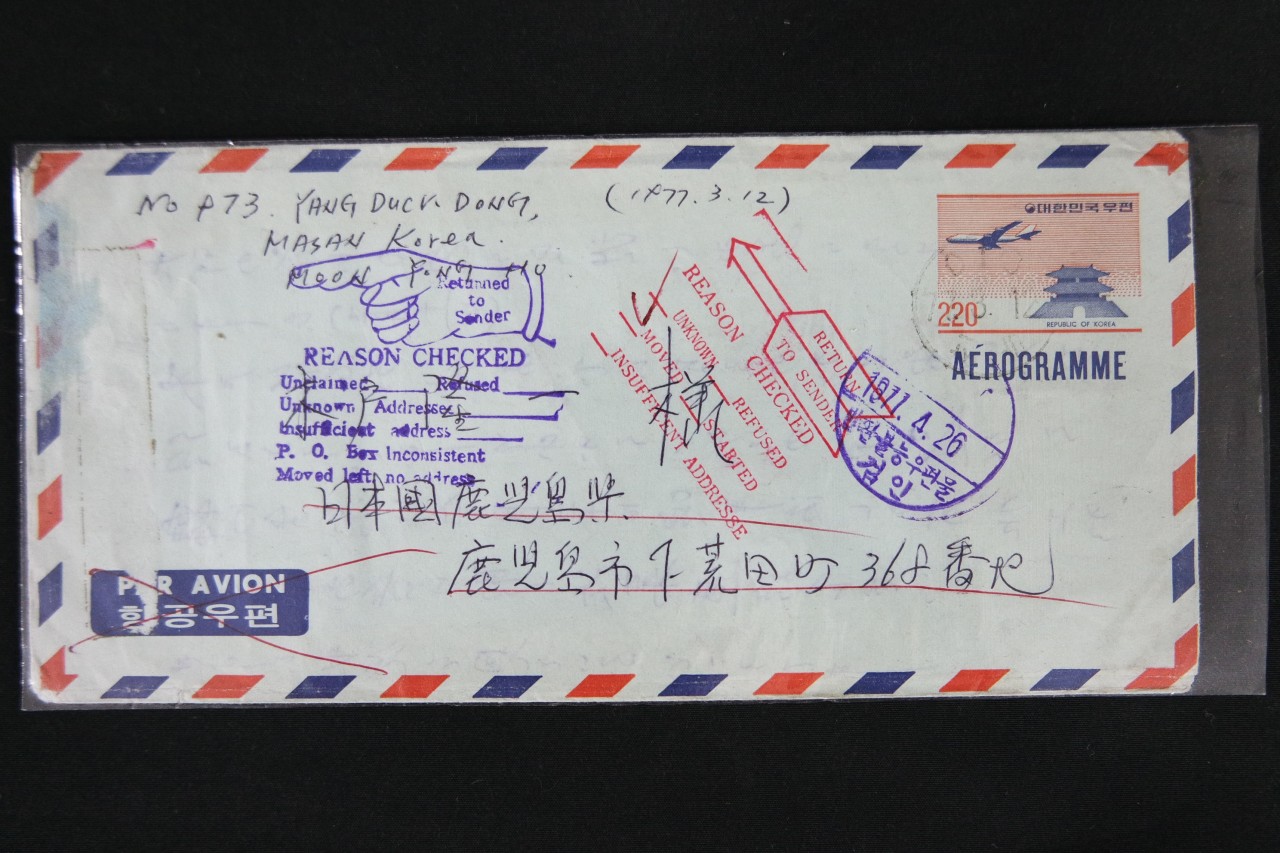 No 973. YANG DUCK-DONG, (1977.3.12)
MASAN Korea.
MOON YONG HO
대한민국우편
220
REPUBLIC OF KOREA
AÉROGRAMME
Returned
to
Sender
REASON CHECKED
Unclaimed Refused
Unknown Addressee
Insufficient address
P. O. Box Inconsistent
Moved left no address
RETURN
TO SENDER
REASON CHECKED
UNKNOWN REFUSED
MOVED STARTED
INSUFFICIENT ADDRESSE
1977. 4. 26
불능우편물
검인
様
日本國鹿児島県
鹿児島市下荒田町368番地
PAR AVION
항공우편